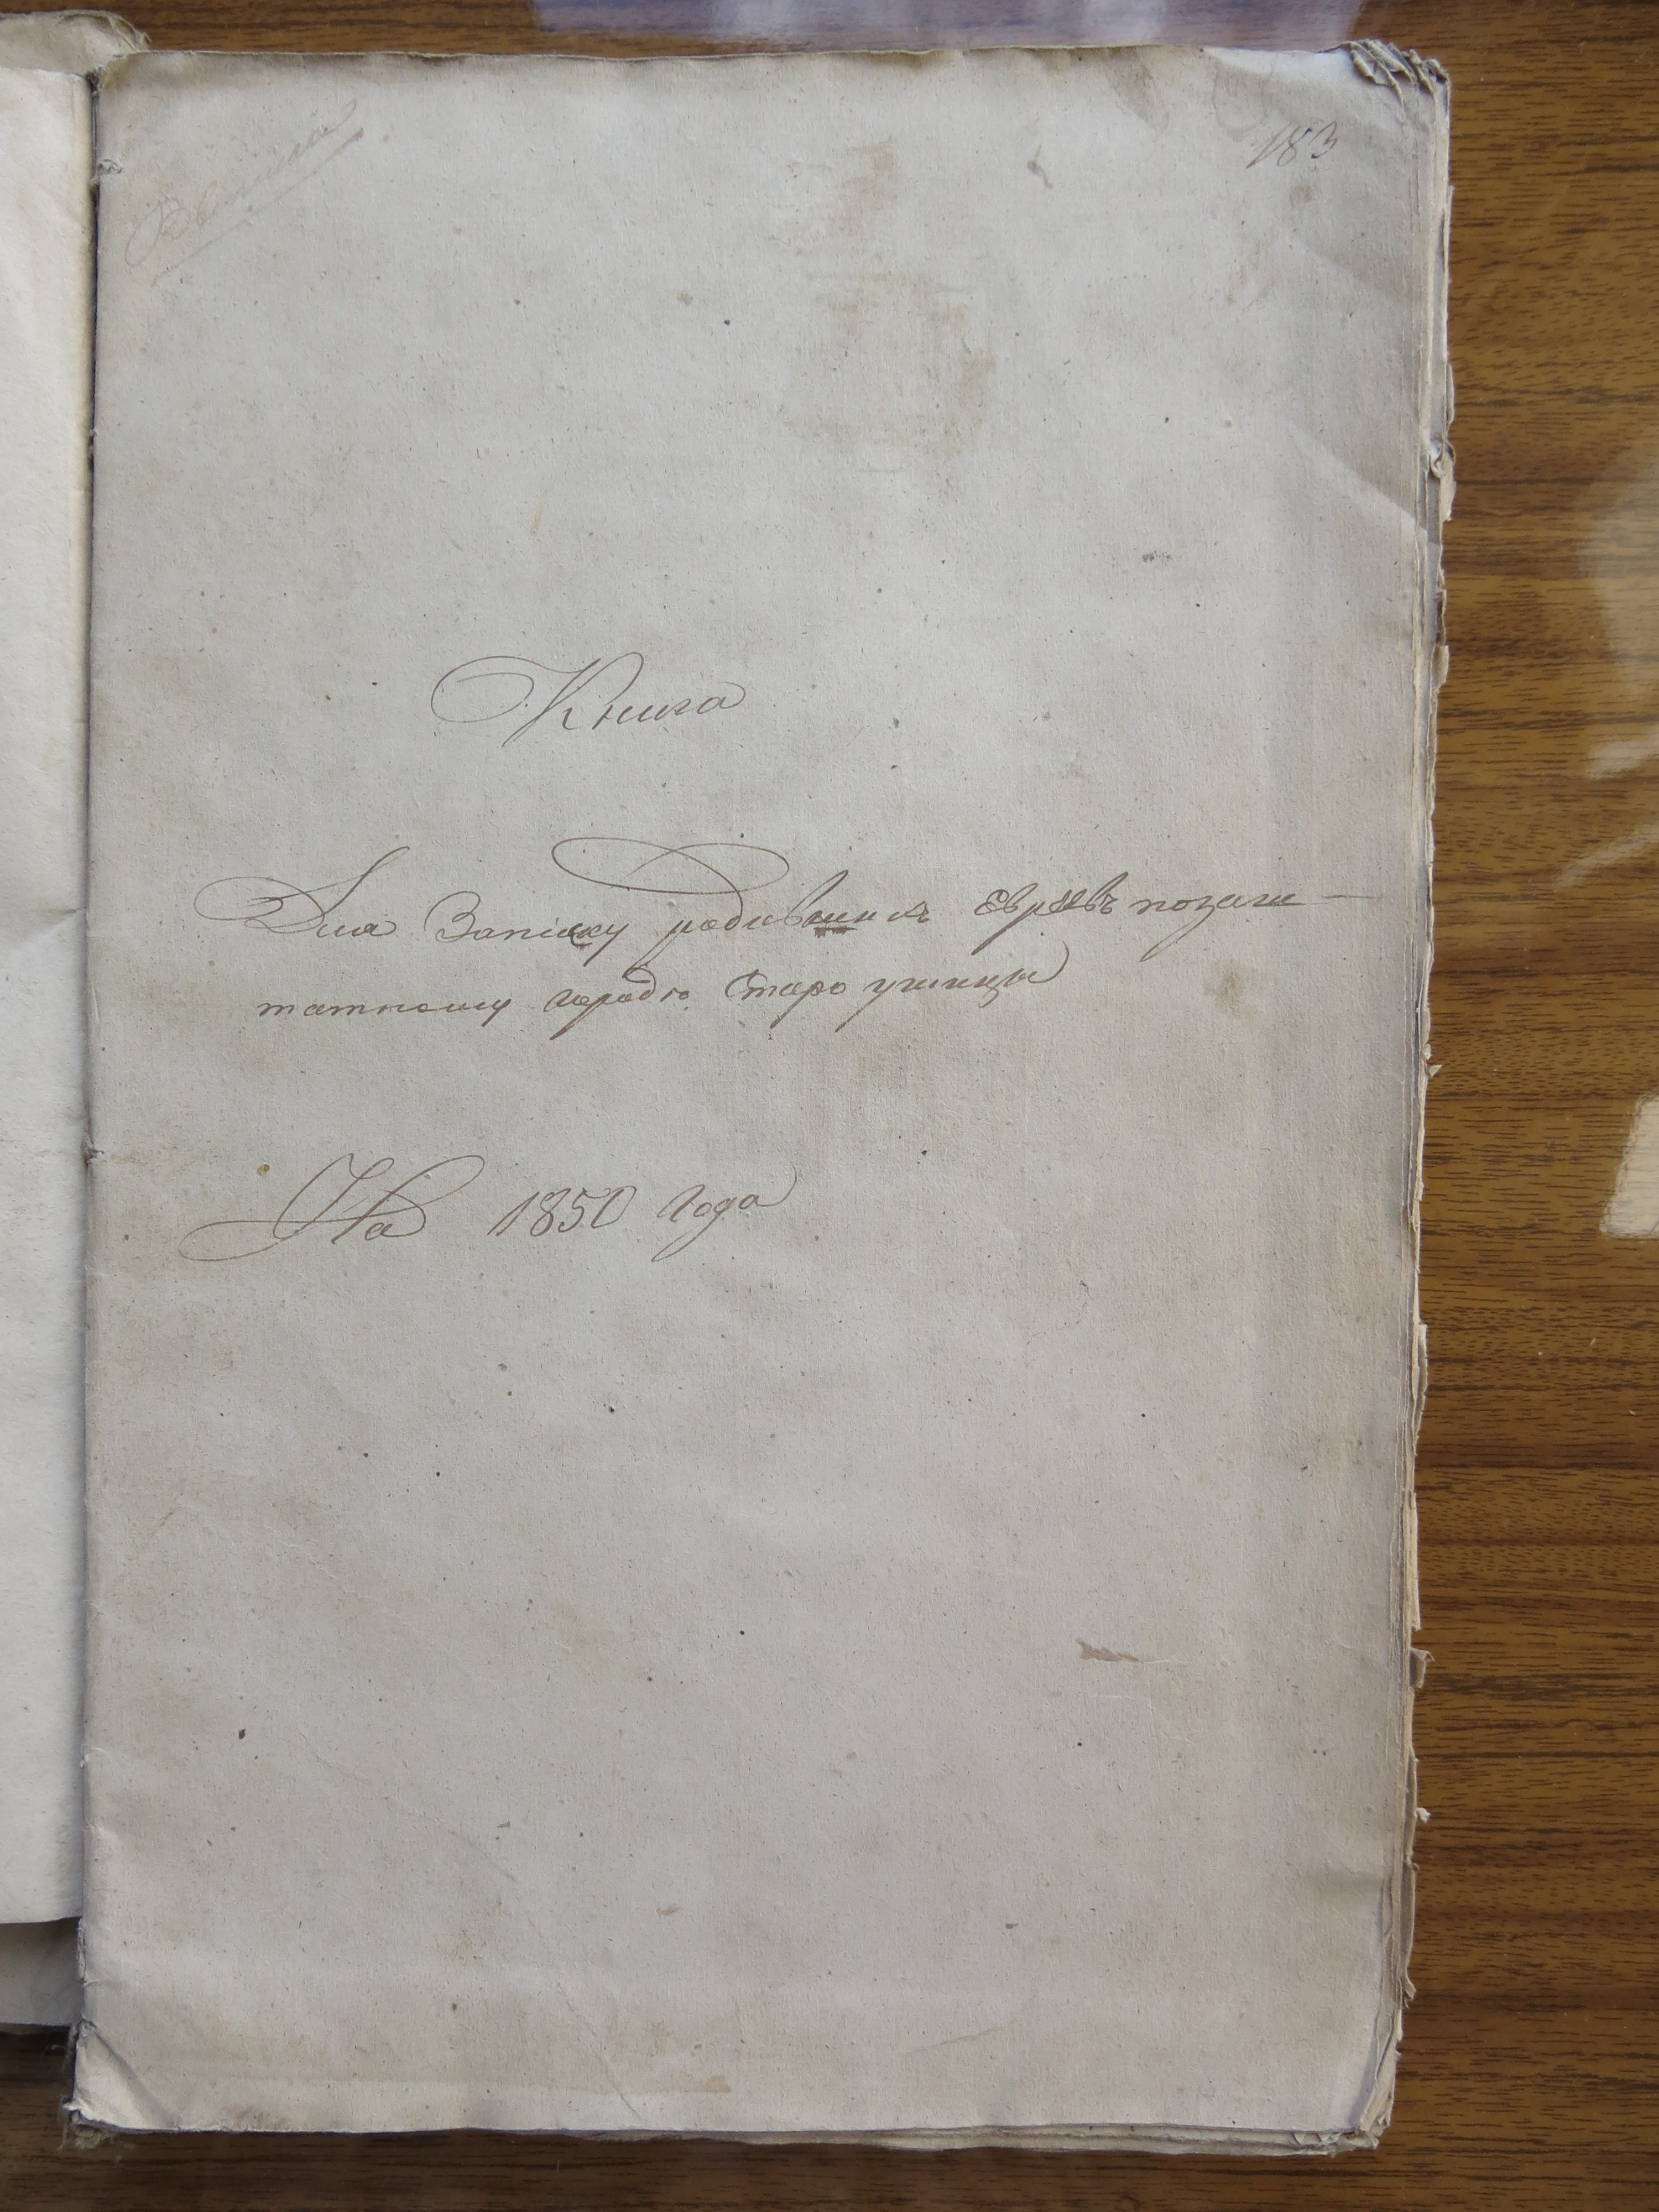 183
Книга
Для Записку родившихъ Евреевъ позаш-
татному городу Старо ушицы
На 1850 года